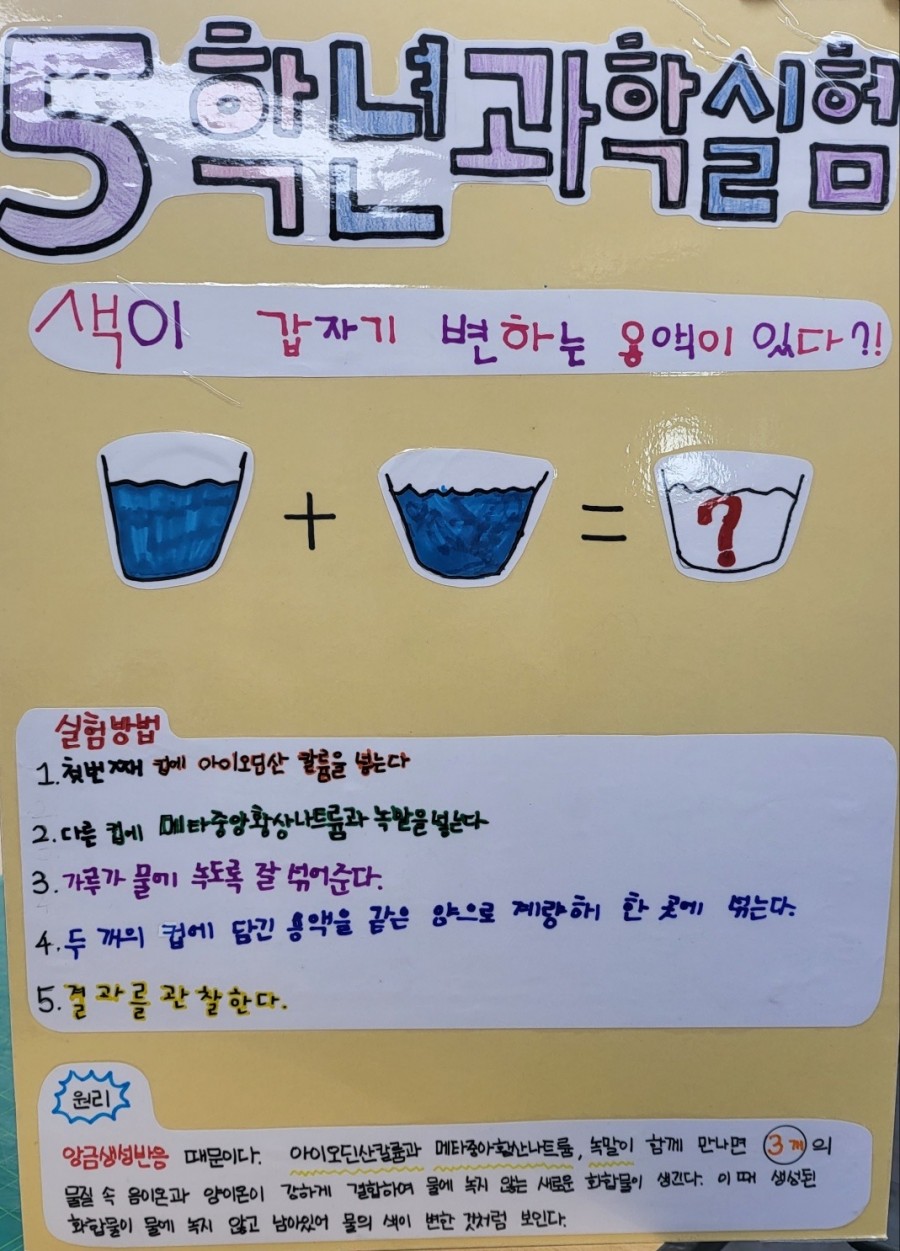 5학년과학실험
색이 갑자기 변하는 용액이 있다?!
+ = ?
실험방법
1. 첫번째 컵에 아이오딤산 칼륨을 넣는다
2. 다른 컵에 메타중앙황상나트륨과 녹말을 넣는다
3. 가루가 물에 녹도록 잘 섞어준다.
4. 두 개의 컵에 담긴 용액을 같은 양으로 계량하의 한 곳에 섞는다.
5. 결과를 관찰한다.
원리
앙금생성반응 때문이다. 아이오딘산칼륨과 메타중아황산나트륨, 녹말이 함께 만나면 3개의
물질 속 음이온과 양이온이 강하게 결합하여 물에 녹지 않는 새로운 화합물이 생긴다. 이 때 생성된
화합물이 물에 녹지 않고 남아있어 물의 색이 변한 것처럼 보인다.